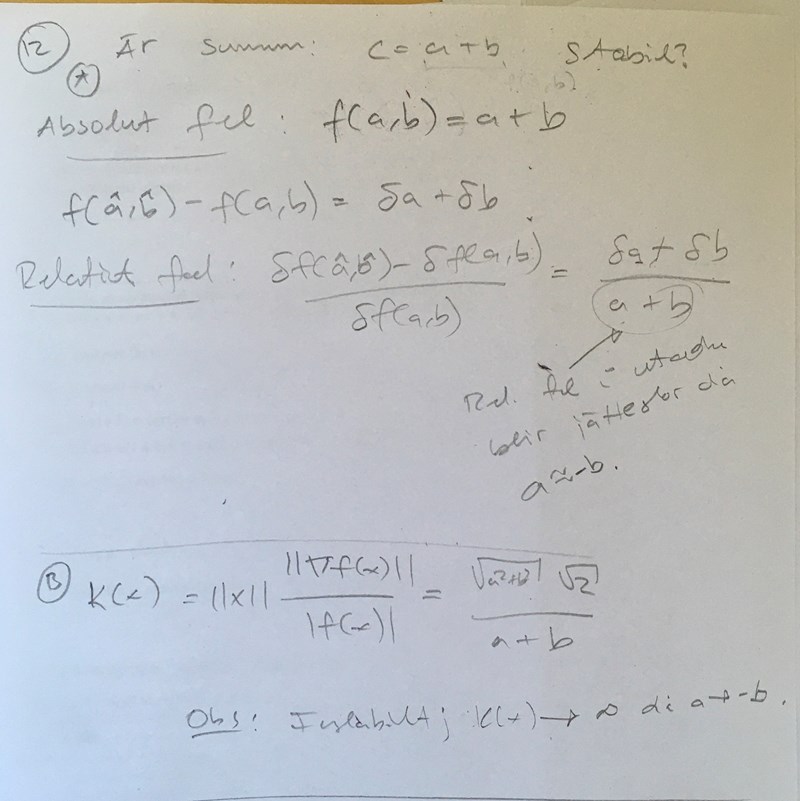 12 Är summan: c = a + b stabil?
A
Absolut fel: f(a,b) = a + b
f(â,b̂) - f(a,b) = δa + δb
Relativt fel: δf(â,b̂) - δf(a,b) / δf(a,b) = δa + δb / a + b
Rel. fel i utdata
blir jättestor då
a ≈ -b.
B K(x) = ||x|| ||∇f(x)|| / |f(x)| = √a²+b² √2 / a + b
Obs: Instabilt; K(x) → ∞ då a → -b.